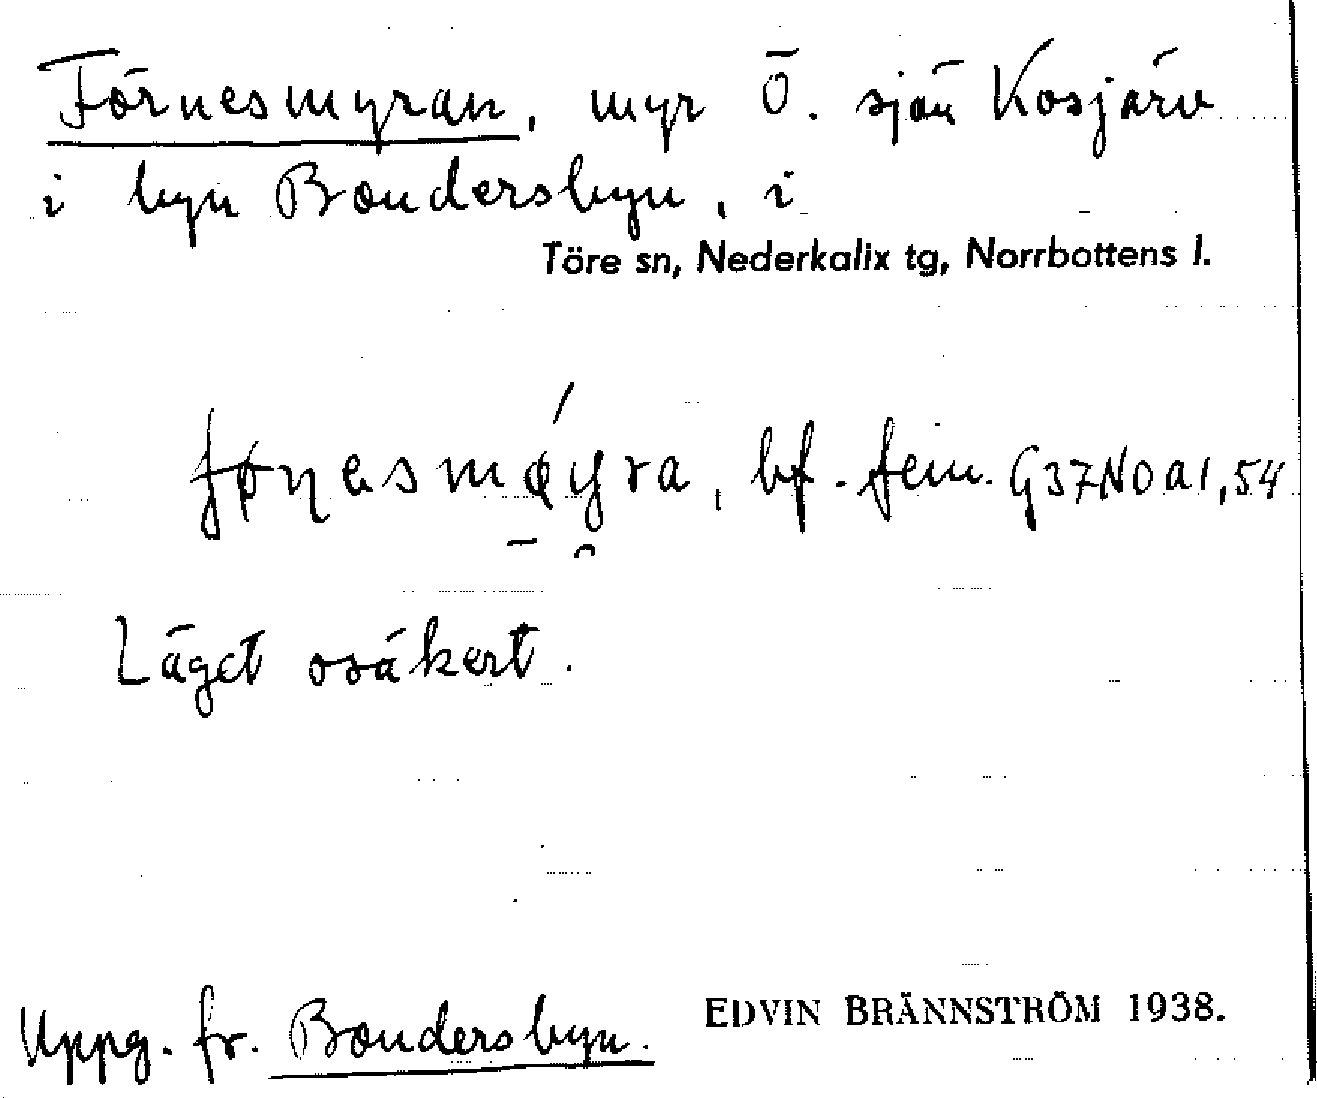 Förnesmyran, myr Ö. sjön Kosjärv
i byn Bondersbyn, i
Töre sn, Nederkalix tg, Norrbottens l.
bf. fem. G37NOa1,54
Läget osäkert.
Uppg. fr. Bondersbyn.
EDVIN BRÄNNSTRÖM 1938.